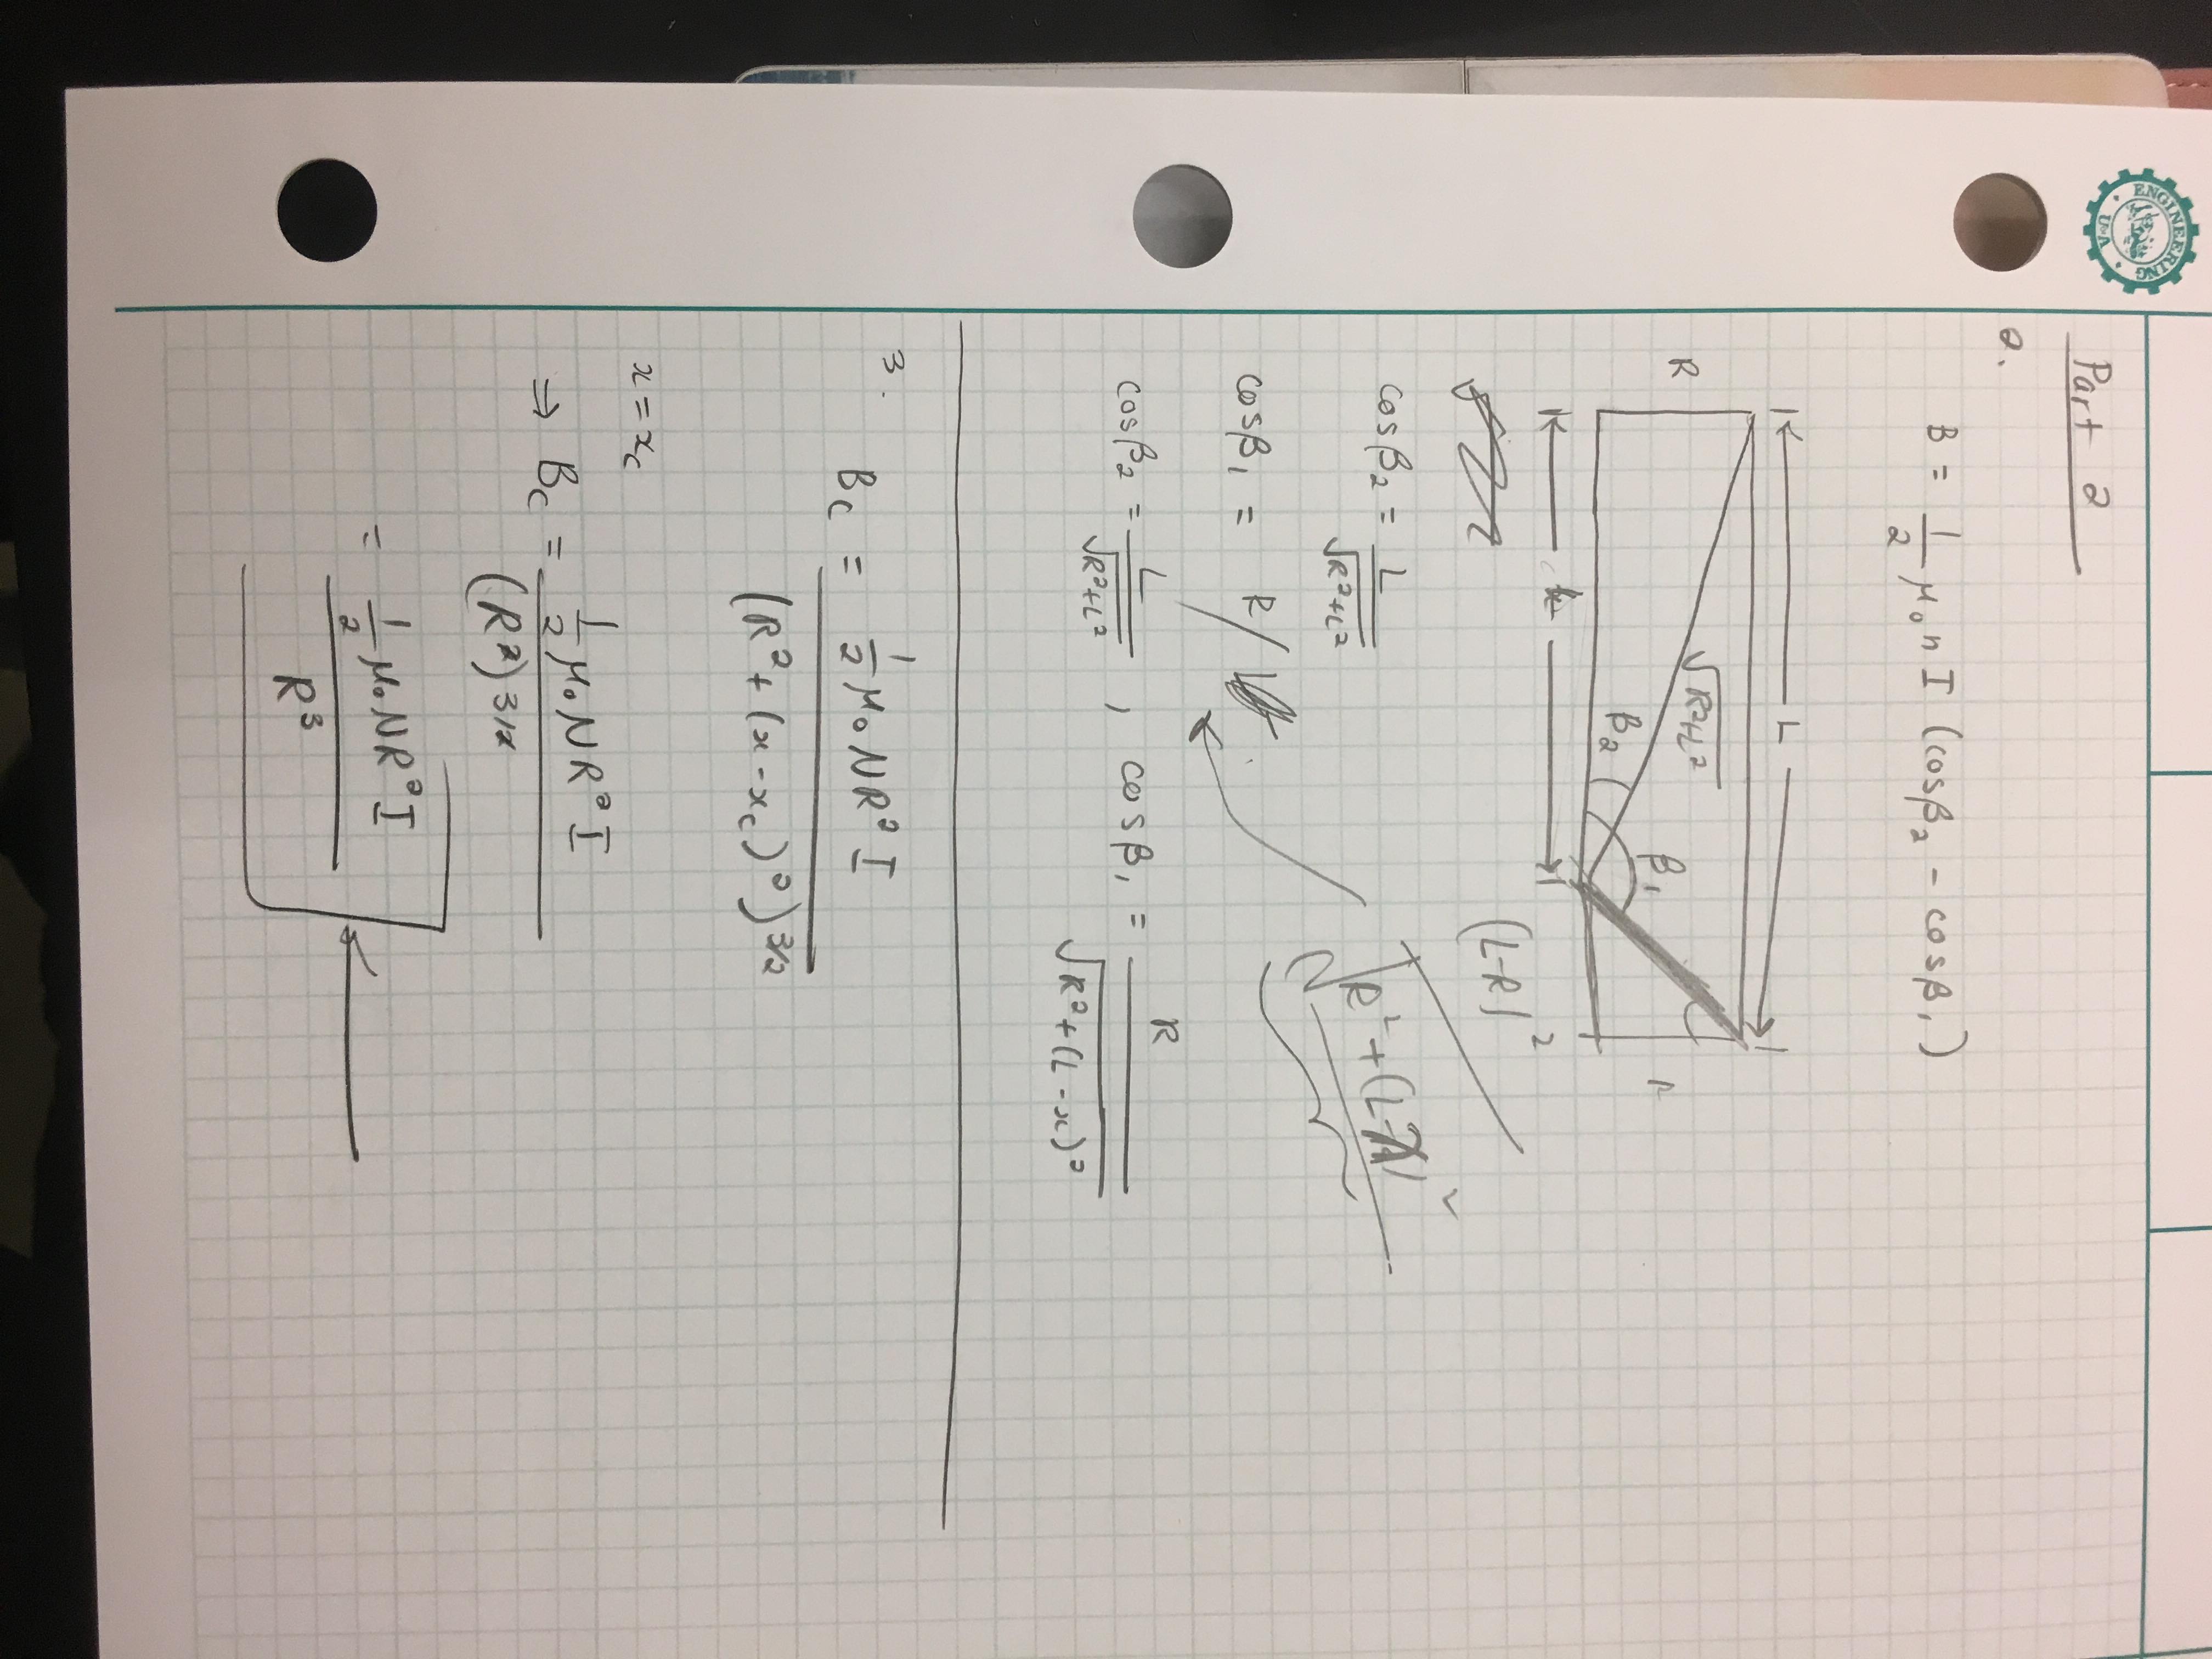 ENGINEERING
U of A
Part 2
2.
B = 1/2 μ₀ n I (cosβ₂ - cosβ₁)
L
R
√R²+L²
β₂
β₁
R
(L-R)²
cosβ₂ = L / √R²+L²
√R²+(L-x)²
cosβ₁ = R /
cosβ₂ = L / √R²+L² , cosβ₁ = R / √R²+(L-x)²
3.
B_c = 1/2 μ₀ N R² I / (R²+(x-x_c)²)^3/2
x = x_c
⇒ B_c = 1/2 μ₀ N R² I / (R²)^3/2
= 1/2 μ₀ N R² I / R³